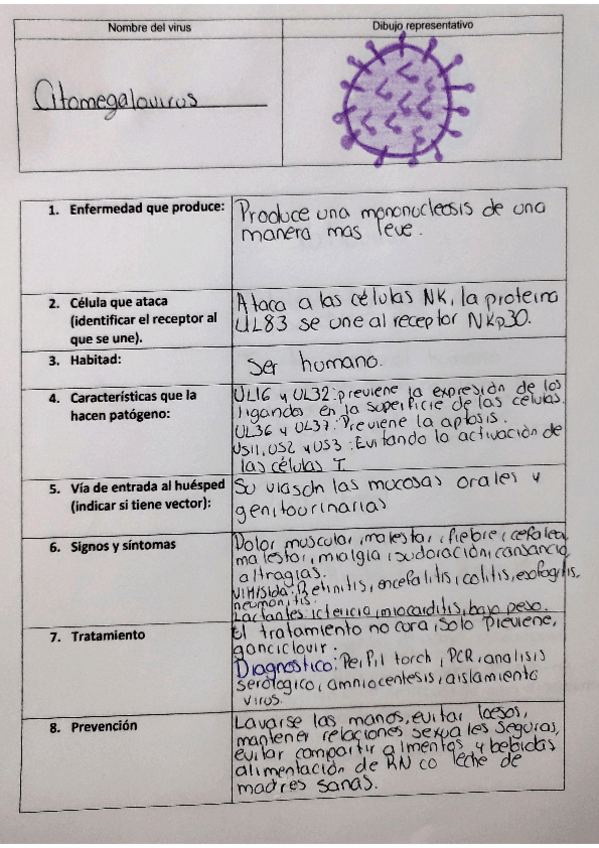 Nombre del virus
Dibujo representativo
Citomegalovirus
1. Enfermedad que produce:
Produce una mononucleosis de una
manera mas leve.
2. Célula que ataca
(identificar el receptor al
que se une).
Ataca a las células NK, la proteina
UL83 se une al receptor NKp30.
3. Habitad:
Ser humano.
4. Características que la
hacen patógeno:
UL16 y UL32: previene la expresión de los
ligandos en la superficie de las células.
UL36 y UL37: Previene la aptosis.
US11, US2 y US3: Evitando la activación de
las células T
5. Vía de entrada al huésped
(indicar si tiene vector):
Su vias son las mucosas orales y
genitourinarias
6. Signos y síntomas
Dolor muscular, malestar, fiebre, cefalea,
malestar, mialgia, sudoración, cansancio,
altragias.
VIH/Sida: Retinitis, encefalitis, colitis, esofagitis,
neumonitis.
Lactantes: ictericia, miocarditis, bajo peso.
7. Tratamiento
El tratamiento no cura, solo previene,
ganciclovir.
Diagnostico: Perfil torch, PCR, analisis
serologico, amniocentesis, aislamiento
virus.
8. Prevención
Lavarse las manos, evitar besos,
mantener relaciones sexuales seguras,
evitar compartir almentos y bebidas
alimentación de RN co leche de
madres sanas.